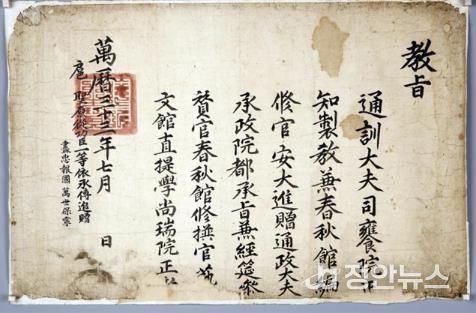 教旨
通訓大夫司饔院正
知製教兼春秋館編
修官安大進贈通政大夫
承政院都承旨兼經筵參
贊官春秋館修撰官藝
文館直提學尚瑞院正者
萬曆三十三年七月 日
扈聖原從功臣一等依承傳追贈
盡忠報國 萬世保寧
정안뉴스